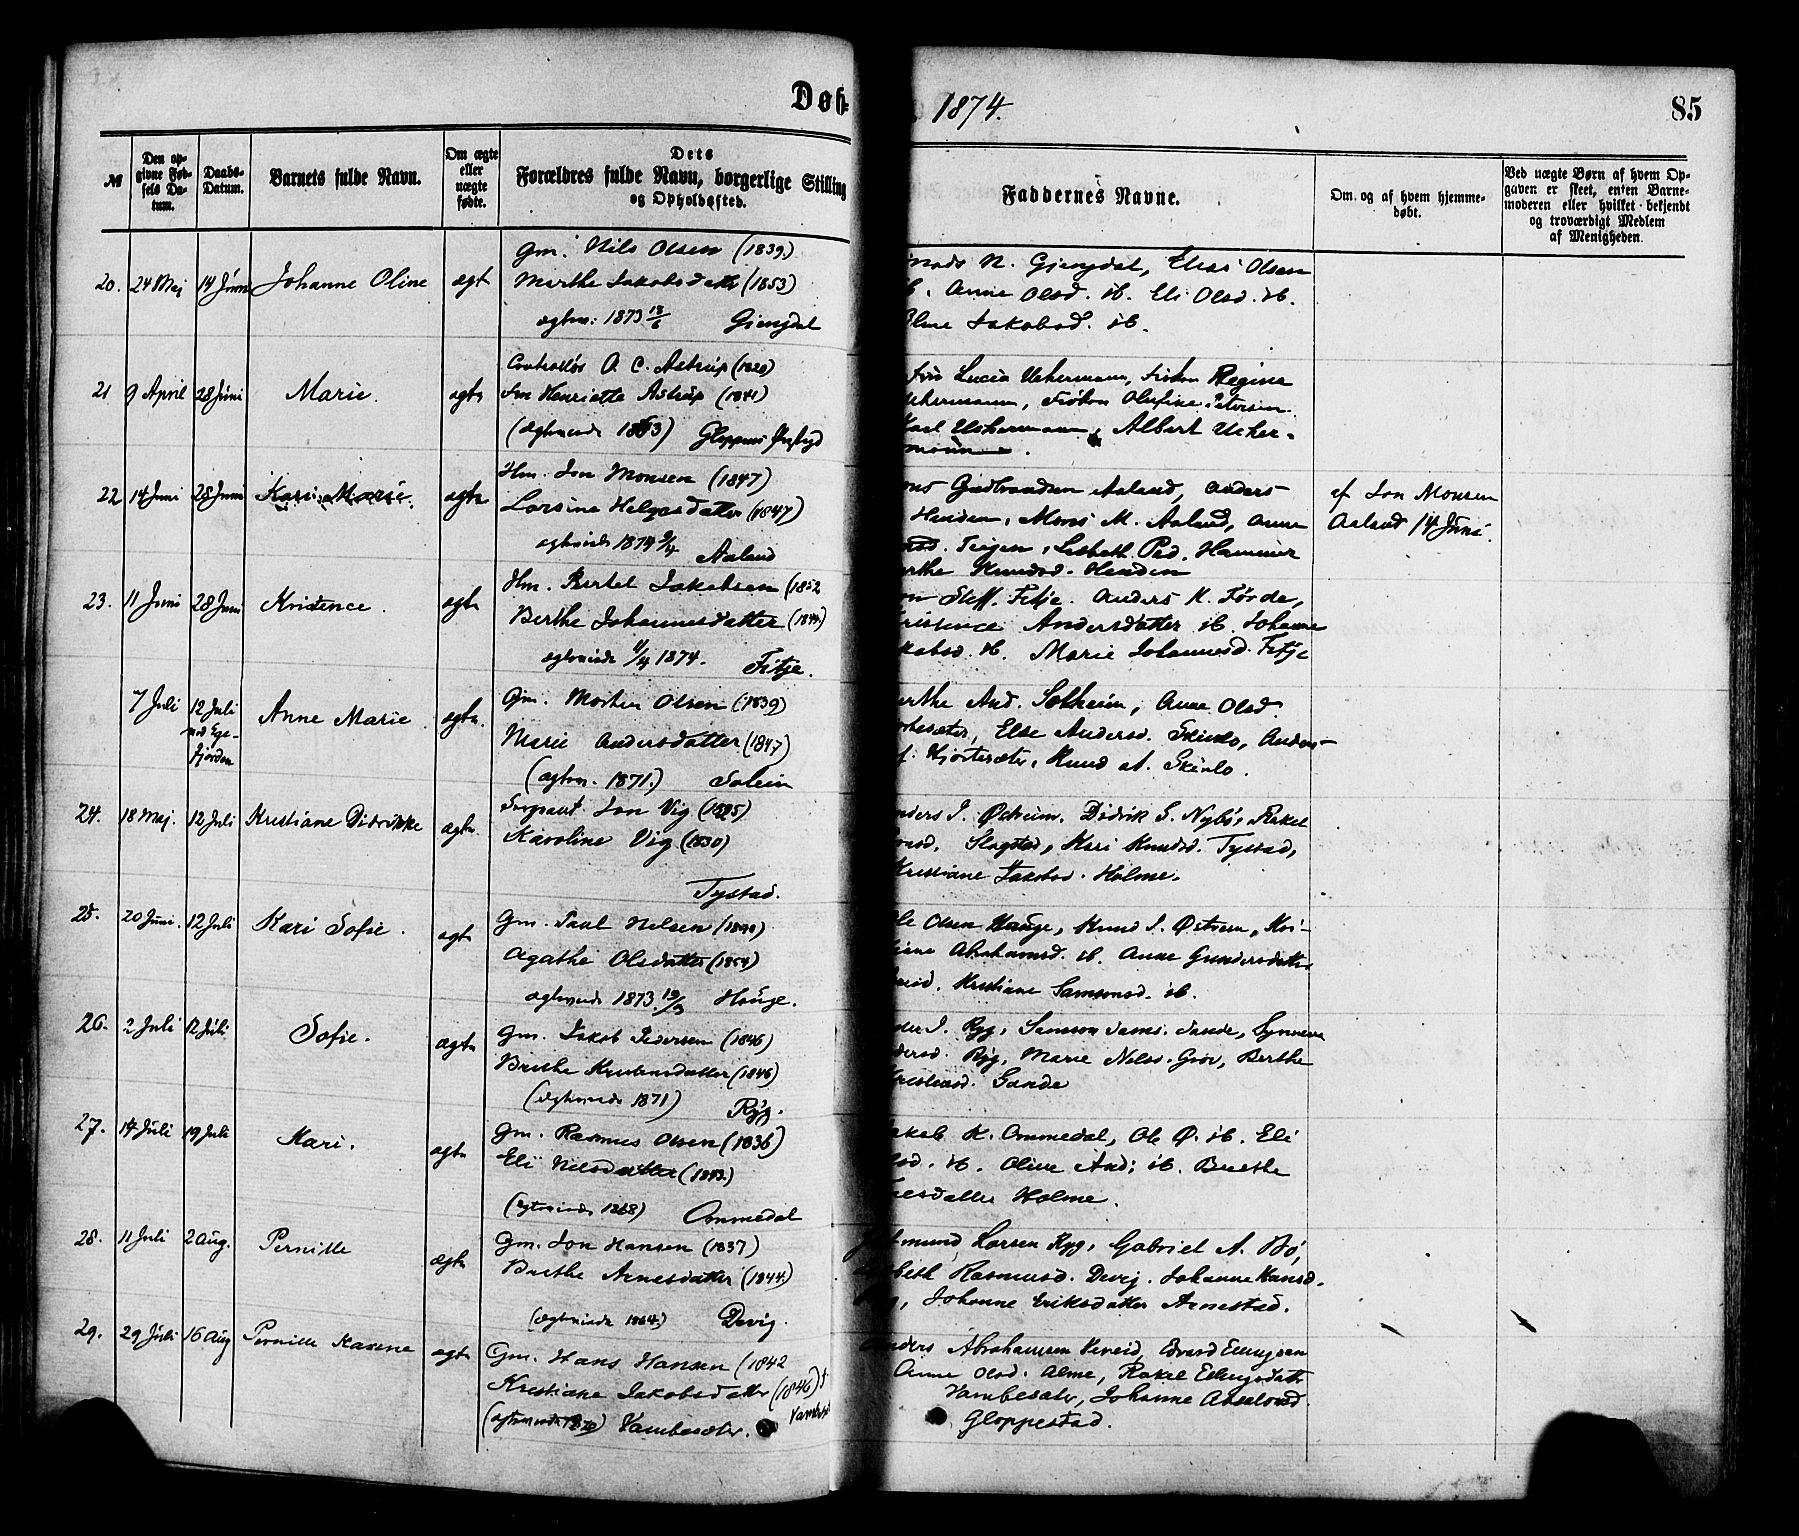 Døb-
1874.
85
№
Den op-
givne Fød-
sels Da-
tum.
Daabs-
Datum.
Barnets fulde Navn.
Om ægte
eller
uægte
fødte.
Dets
Forældres fulde Navn, borgerlige Stilling
og Opholdssted.
Faddernes Navne.
Om og af hvem hjemme-
døbt.
Ved uægte Børn af hvem Op-
gaven er skeet, enten Barne-
moderen eller hvilket bekjendt
og troværdigt Medlem
af Menigheden.
20. 24 Maj 14 Juni Johanne Oline ægt
Gm. Nils Olsen (1839)
Marthe Jakobsdatter (1853)
ægtev: 1873 Gjengdal
N. Gjengdal, Elias Olsen
Anne Olsd. ib. Eli Olsd. ib.
Jakobsd. ib.
21 9 April 28 Juni Marie. ægte
A. C. Astrup
Fru Henriette Astrup (1841)
(ægteviede 1863) Gloppens
Lucia Uchermann, Frøken Regine
Uchermann, Frøken Olufine Petersen
Uchermann, Albert Ucher-
mann.
22 14 Juni 28 Juni Kari Marie. ægte
Hm. Jon Monsen (1847)
Larsine Helgesdatter (1847)
ægteviede 1874 Aaland
Gudbrandsen Aaland, Anders
Henden, Mons M. Aaland, Anne
Teigen, Lisbeth Ped. Hammer
Knudsd. Henden
af Jon Monsen
Aaland 14 Juni.
23. 11 Juni 28 Juni Kristence. ægte
Hm. Bertel Jakobsen (1852
Berthe Johannesdatter (1844)
ægteviede 11/4 1874. Fitje.
Steff. Fitje. Anders K. Førde,
Andersdatter ib. Johanne
ib. Marie Johannesd. Fitje
7 Juli 12 Juli
fjorden
Anne Marie ægte.
Gm. Morten Olsen (1839)
Marie Andersdatter (1847)
(ægtev. 1871.) Solem
And. Solheim, Anne Olsd.
Else Andersd. Skinlo, Anders
Hjortesæter, Knud at. Skinlo.
24. 18 Maj. 12 Juli Kristiane Didrikke ægte.
Sergeant Jon Vig
Karoline Vig (1830)
Tystad.
J. Østreim, Didrik S. Nybø, Rakel
Slagstad, Kari Knudsd. Tystad,
Kristiane Jakobsd. Holme.
25. 20 Juni. 12 Juli Kari Sofie. ægte
Gm. Paul Nelsen
Agathe Olsdatter (1854)
ægteviede 1873 Hauge.
Olsen Hauge, Knud J. Østrem, Kri-
Abrahamsd. ib. Anne Gundersdatter
Kristiane Samsonsd. ib.
26. 2 Juli 12 Juli Sofie. ægte
Gm. Jakob Pedersen (1846)
Berthe Kristensdatter (1846)
(ægteviede 1871) Ryg.
J. Ryg, Samson Sams. Sande, Synneve
Ryg, Marie Nilsd. Grov, Berthe
Sande
27. 14 Juli 19 Juli Kari. ægte
Gm. Rasmus Olsen (1836)
Eli Nilsdatter (1843.)
(ægteviede 1868) Ommedal
K. Ommedal, Ole Ø. ib. Eli
ib. Oline And: ib. Berthe
Holme.
28. 11 Juli 2 Aug. Pernille ægte
Gm. Jon Hansen (1837)
Berthe Arnesdatter (1844)
(ægteviede 1864.) Devig.
Larsen Ryg, Gabriel A. Bø,
Rasmusd. Devig. Johanne Hansd.
Johanne Eriksdatter Arnestad.
29. 29 Juli 16 Aug Pernille Karene ægte
Gm. Hans Hansen (1842
Kristiane Jakobsdatter (1846)
(ægteviede 1870) Vambesæter.
Abrahamsen Vereid, Edvard Ellingsen
Anne Olsd. Alme, Rakel Ellingsdatter
Vambesæter, Johanne Absalonsd.
Gloppestad.